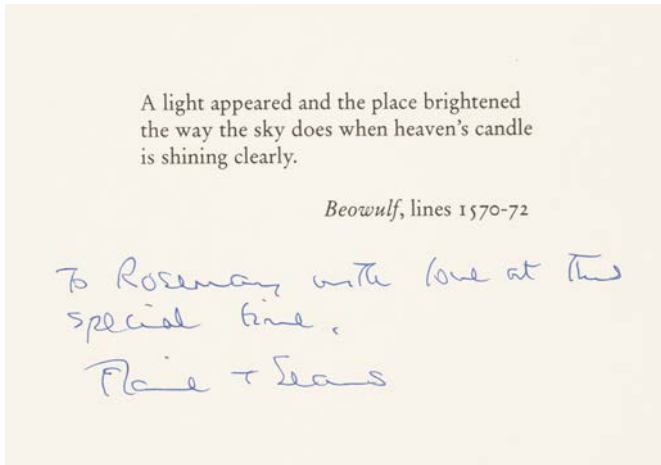 A light appeared and the place brightened
the way the sky does when heaven's candle
is shining clearly.
Beowulf, lines 1570-72
To Rosemary with love at this
special time.
Marie + Seamus